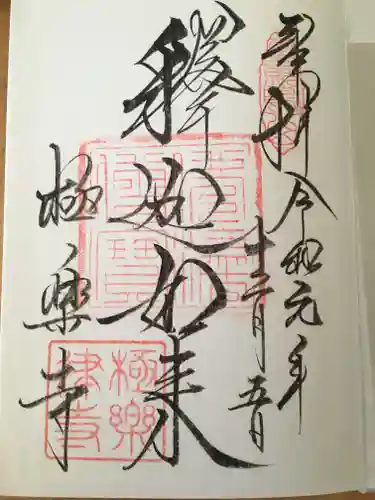 奉拝 令和元年
十二月五日
釋迦如来
極楽寺
極樂
律寺